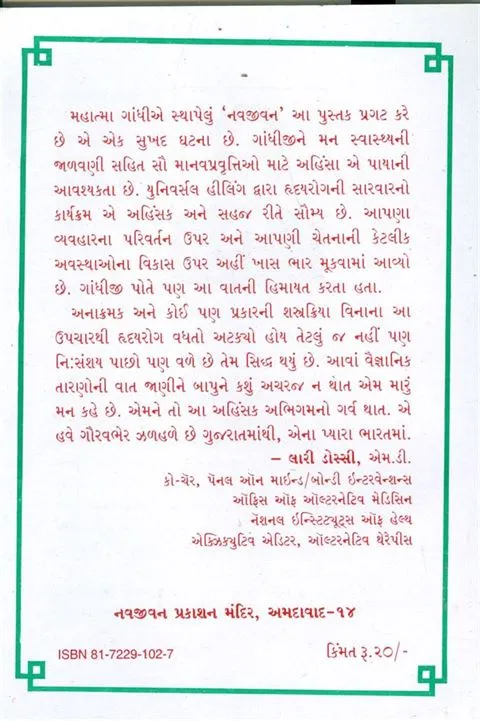 મહાત્મા ગાંધીએ સ્થાપેલું ‘નવજીવન’ આ પુસ્તક પ્રગટ કરે
છે એ એક સુખદ ઘટના છે. ગાંધીજીને મન સ્વાસ્થ્યની
જાળવણી સહિત સૌ માનવપ્રવૃત્તિઓ માટે અહિંસા એ પાયાની
આવશ્યકતા છે. યુનિવર્સલ હીલિંગ દ્વારા હૃદયરોગની સારવારનો
કાર્યક્રમ એ અહિંસક અને સહજ રીતે સૌમ્ય છે. આપણા
વ્યવહારના પરિવર્તન ઉપર અને આપણી ચેતનાની કેટલીક
અવસ્થાઓના વિકાસ ઉપર અહીં ખાસ ભાર મૂકવામાં આવ્યો
છે. ગાંધીજી પોતે પણ આ વાતની હિમાયત કરતા હતા.
અનાક્રમક અને કોઈ પણ પ્રકારની શસ્ત્રક્રિયા વિનાના આ
ઉપચારથી હૃદયરોગ વધતો અટક્યો હોય તેટલું જ નહીં પણ
નિ:સંશય પાછો પણ વળે છે તેમ સિદ્ધ થયું છે. આવાં વૈજ્ઞાનિક
તારણોની વાત જાણીને બાપુને કશું અચરજ ન થાત એમ મારું
મન કહે છે. એમને તો આ અહિંસક અભિગમનો ગર્વ થાત. એ
હવે ગૌરવભેર ઝળહળે છે ગુજરાતમાંથી, એના પ્યારા ભારતમાં.
– લારી ડોસ્સી, એમ.ડી.
કો-ચૅર, પૅનલ ઑન માઇન્ડ/બૉન્ડી ઇન્ટરવેન્શન્સ
ઑફિસ ઑફ ઑલ્ટરનેટિવ મેડિસિન
નૅશનલ ઈન્સ્ટિટ્યૂટ્સ ઑફ હેલ્થ
એક્ઝિક્યુટિવ એડિટર, ઑલ્ટરનેટિવ થેરેપીસ
નવજીવન પ્રકાશન મંદિર, અમદાવાદ-૧૪
ISBN 81-7229-102-7 કિંમત રૂ.૨૦/-